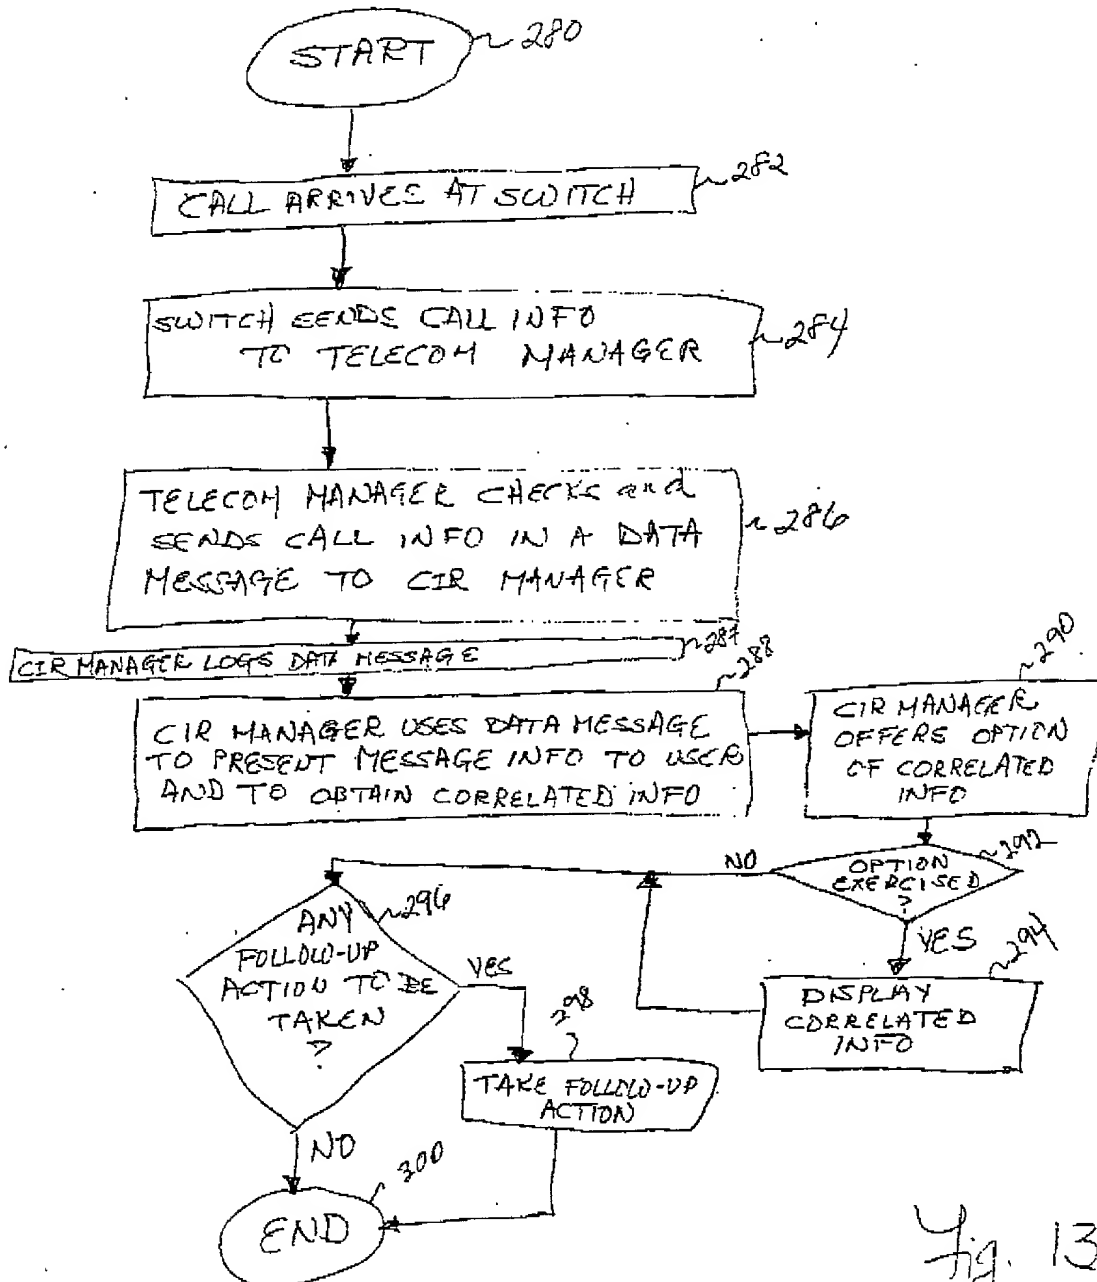 START
280
CALL ARRIVES AT SWITCH
282
SWITCH SENDS CALL INFO
TO TELECOM MANAGER
284
TELECOM MANAGER CHECKS and
SENDS CALL INFO IN A DATA
MESSAGE TO CIR MANAGER
286
CIR MANAGER LOGS DATA MESSAGE
287
CIR MANAGER USES DATA MESSAGE
TO PRESENT MESSAGE INFO TO USER
AND TO OBTAIN CORRELATED INFO
288
CIR MANAGER
OFFERS OPTION
OF CORRELATED
INFO
290
OPTION
EXERCISED
?
292
NO
YES
DISPLAY
CORRELATED
INFO
294
ANY
FOLLOW-UP
ACTION TO BE
TAKEN
?
296
YES
TAKE FOLLOW-UP
ACTION
298
NO
END
300
Fig. 13